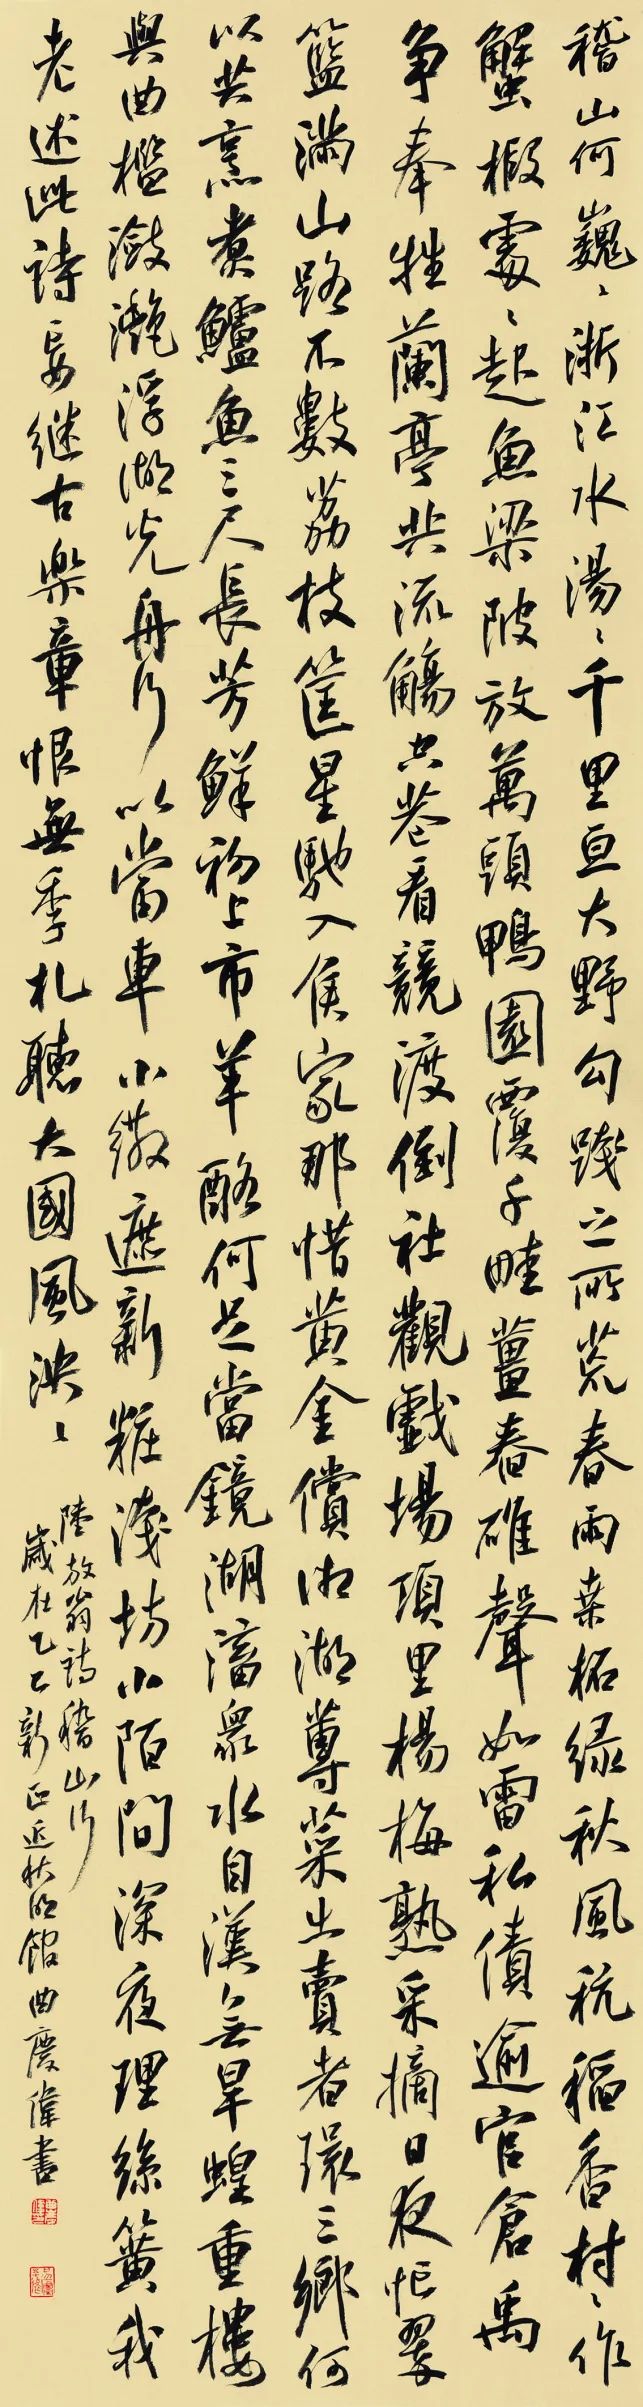 稽山何巍〻浙江水湯〻千里亘大野勾踐之所荒春雨桑柘緑秋風秔稻香村〻作
蟹椴處〻起魚梁陂放萬頭鴨園覆千畦薑舂碓聲如雷私債逾官倉禹
争奉牲蘭亭共流觴空巷看競渡倒社觀戲場項里楊梅熟采摘日夜忙翠
籃滿山路不數荔枝筐星馳入侯家那惜黄金償湘湖蓴菜出賣者環三鄉何
以共烹煮鱸魚三尺長芳鮮初上市羊酪何足當鏡湖瀦衆水自漢無旱蝗重樓
與曲檻瀲灔浮湖光舟行以當車小繖遮新粧淺坊小陌間深夜理絲簧我
老述此詩妄繼古樂章恨無季札聽大國風泱〻
陸放翁詩稽山行
歲在乙巳新正近秋明館曲慶偉書